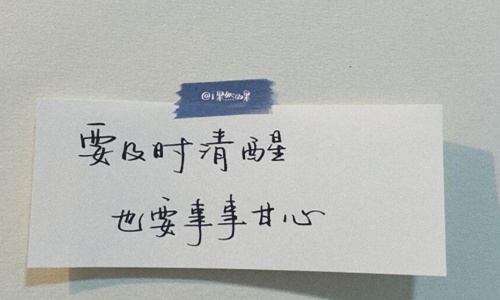 @i果然心果
要及时清醒
也要事事甘心